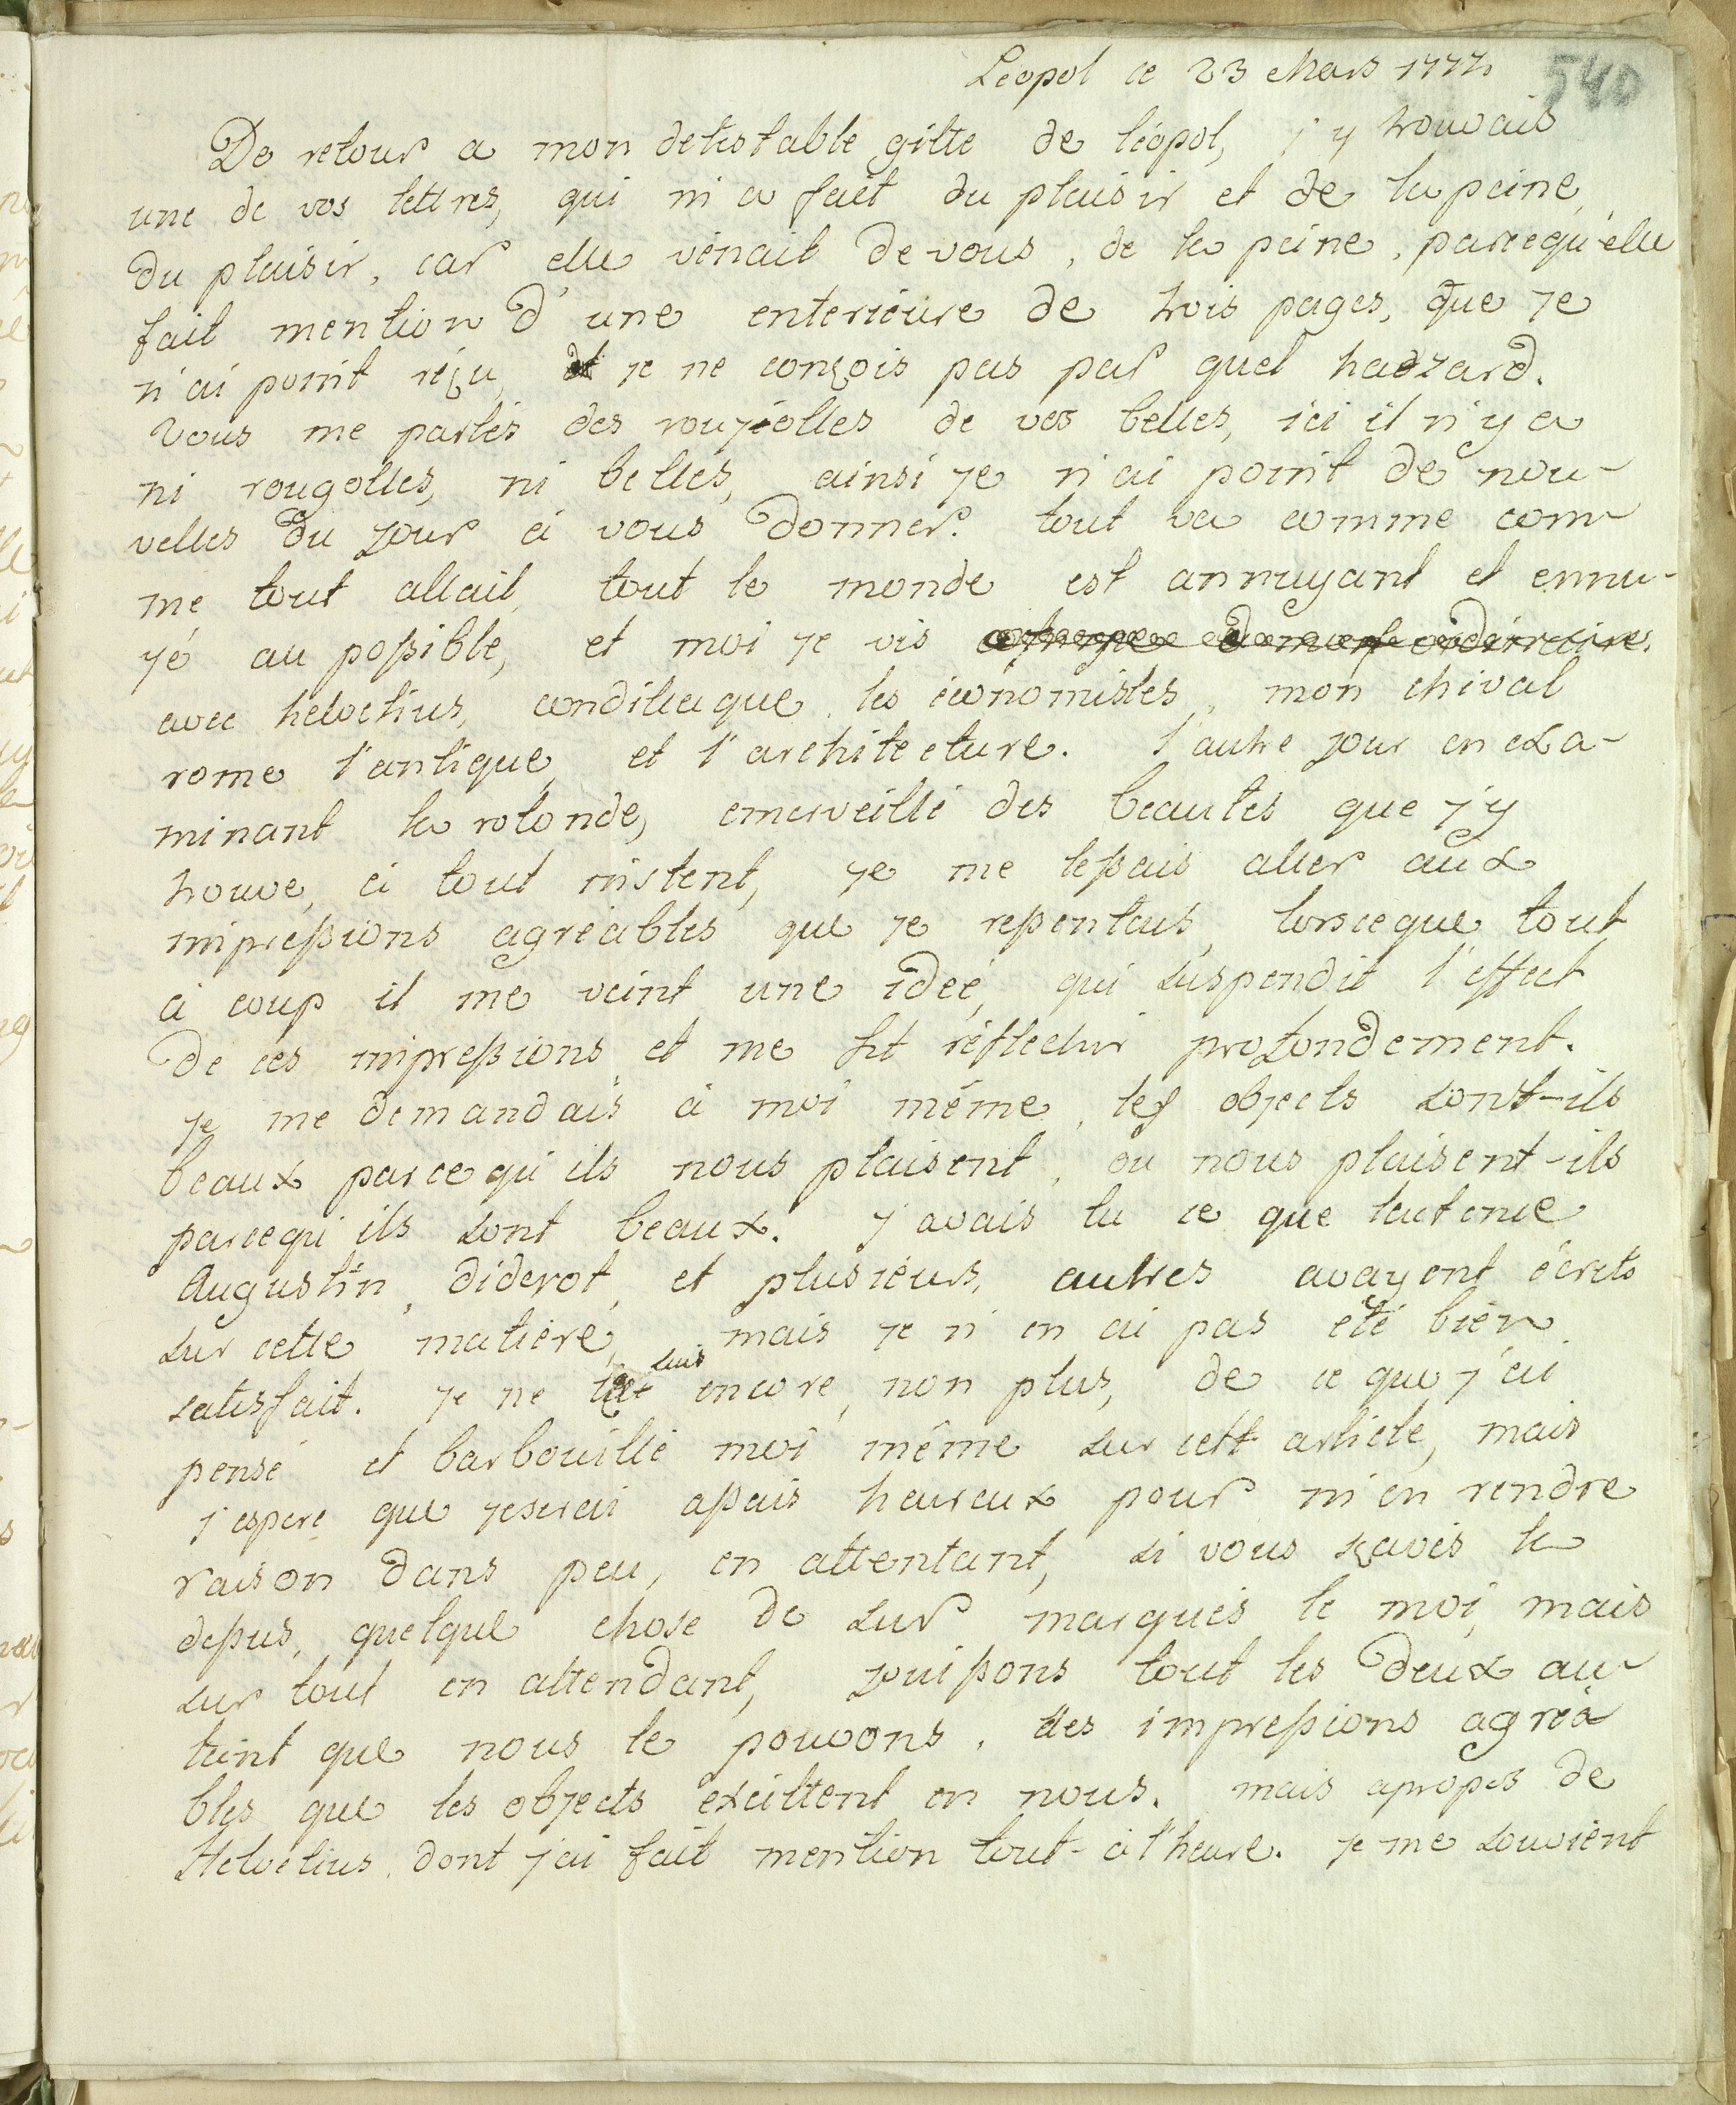 Léopol ce 23 Mars 1777.
540
De retour a mon detestable gitte de léopol, j'y trouvais
une de vos lettres, qui m'a fait du plaisir et de la peine,
du plaisir, car elle vénait de vous, de la peine, parcequ'elle
fait mention d'une enterieure de trois pages, que je
n'ai point réçu, et je ne conçois pas par quel hazzard.
Vous me parlés des roujéolles de vos belles, ici il n'y a
ni rougolles, ni belles, ainsi je n'ai point de nou-
velles du jour à vous donner. tout va comme com-
me tout allait, tout le monde est annuyant et ennu-
yé au poßible, et moi je vis
avec helvetius, condiliaque, les économistes, mon chival
rome l'antique, et l'architecture. l'autre jour en exa-
minant la rotonde, emerveillé des beautés que j'y
trouve, à tout instent, je me leßais aller aux
impreßions agréables que je reßentais, lorsceque tout
à coup il me veint une idée, qui suspendit l'effect
de ces impreßions et me fit réflechir profondement.
je me demandais à moi même, les objects sont-ils
beaux parcequ'ils nous plaisent, ou nous plaisent-ils
parcequ'ils sont beaux. j'avais lu ce que
Augustin, diderot, et plusieurs, autres avayent écrits
sur cette matière, mais je n'en ai pas été bien
satisfait. je ne suis encore, non plus, de ce que j'ai
pensé et barbouillé moi même sur cett article, mais
j'espere que jeserai aßais heureux pour m'en rendre
raison dans peu, en attentant, si vous sçavés la
deßus, quelque chose de sur marqués le moi, mais
sur tout en attendant, jouißons tout les deux au-
tant que nous le pouvons, des impreßions agréa
bles que les objects exsittent en nous. mais apropos de
Helvetius, dont j'ai fait mention tout-à l'heure. je me souvient